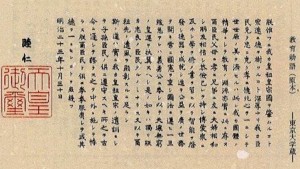 教育勅語（原本）
―東京大学蔵―
朕惟フニ我カ皇祖皇宗國ヲ肇ムルコト
宏遠ニ德ヲ樹ツルコト深厚ナリ我カ臣
民克ク忠ニ克ク孝ニ億兆心ヲ一ニシテ
世世厥ノ美ヲ濟セルハ此レ我カ國體ノ
精華ニシテ教育ノ淵源亦實ニ此ニ存ス
爾臣民父母ニ孝ニ兄弟ニ友ニ夫婦相和
シ朋友相信シ恭儉己レヲ持シ博愛衆ニ
及ホシ學ヲ修メ業ヲ習ヒ以テ智能ヲ啓
發シ德器ヲ成就シ進テ公益ヲ廣メ世務
ヲ開キ常ニ國憲ヲ重シ國法ニ遵ヒ一旦
緩急アレハ義勇公ニ奉シ以テ天壤無窮
ノ皇運ヲ扶翼スヘシ是ノ如キハ獨リ朕
カ忠良ノ臣民タルノミナラス又以テ爾
祖先ノ遺風ヲ顯彰スルニ足ラン
斯ノ道ハ實ニ我カ皇祖皇宗ノ遺訓ニシ
テ子孫臣民ノ俱ニ遵守スヘキ所之ヲ古
今ニ通シテ謬ラス之ヲ中外ニ施シテ悖
ラス朕爾臣民ト俱ニ拳々服膺シテ咸其
德ヲ一ニセンコトヲ庶幾フ
明治二十三年十月三十日
睦仁
天皇
御璽